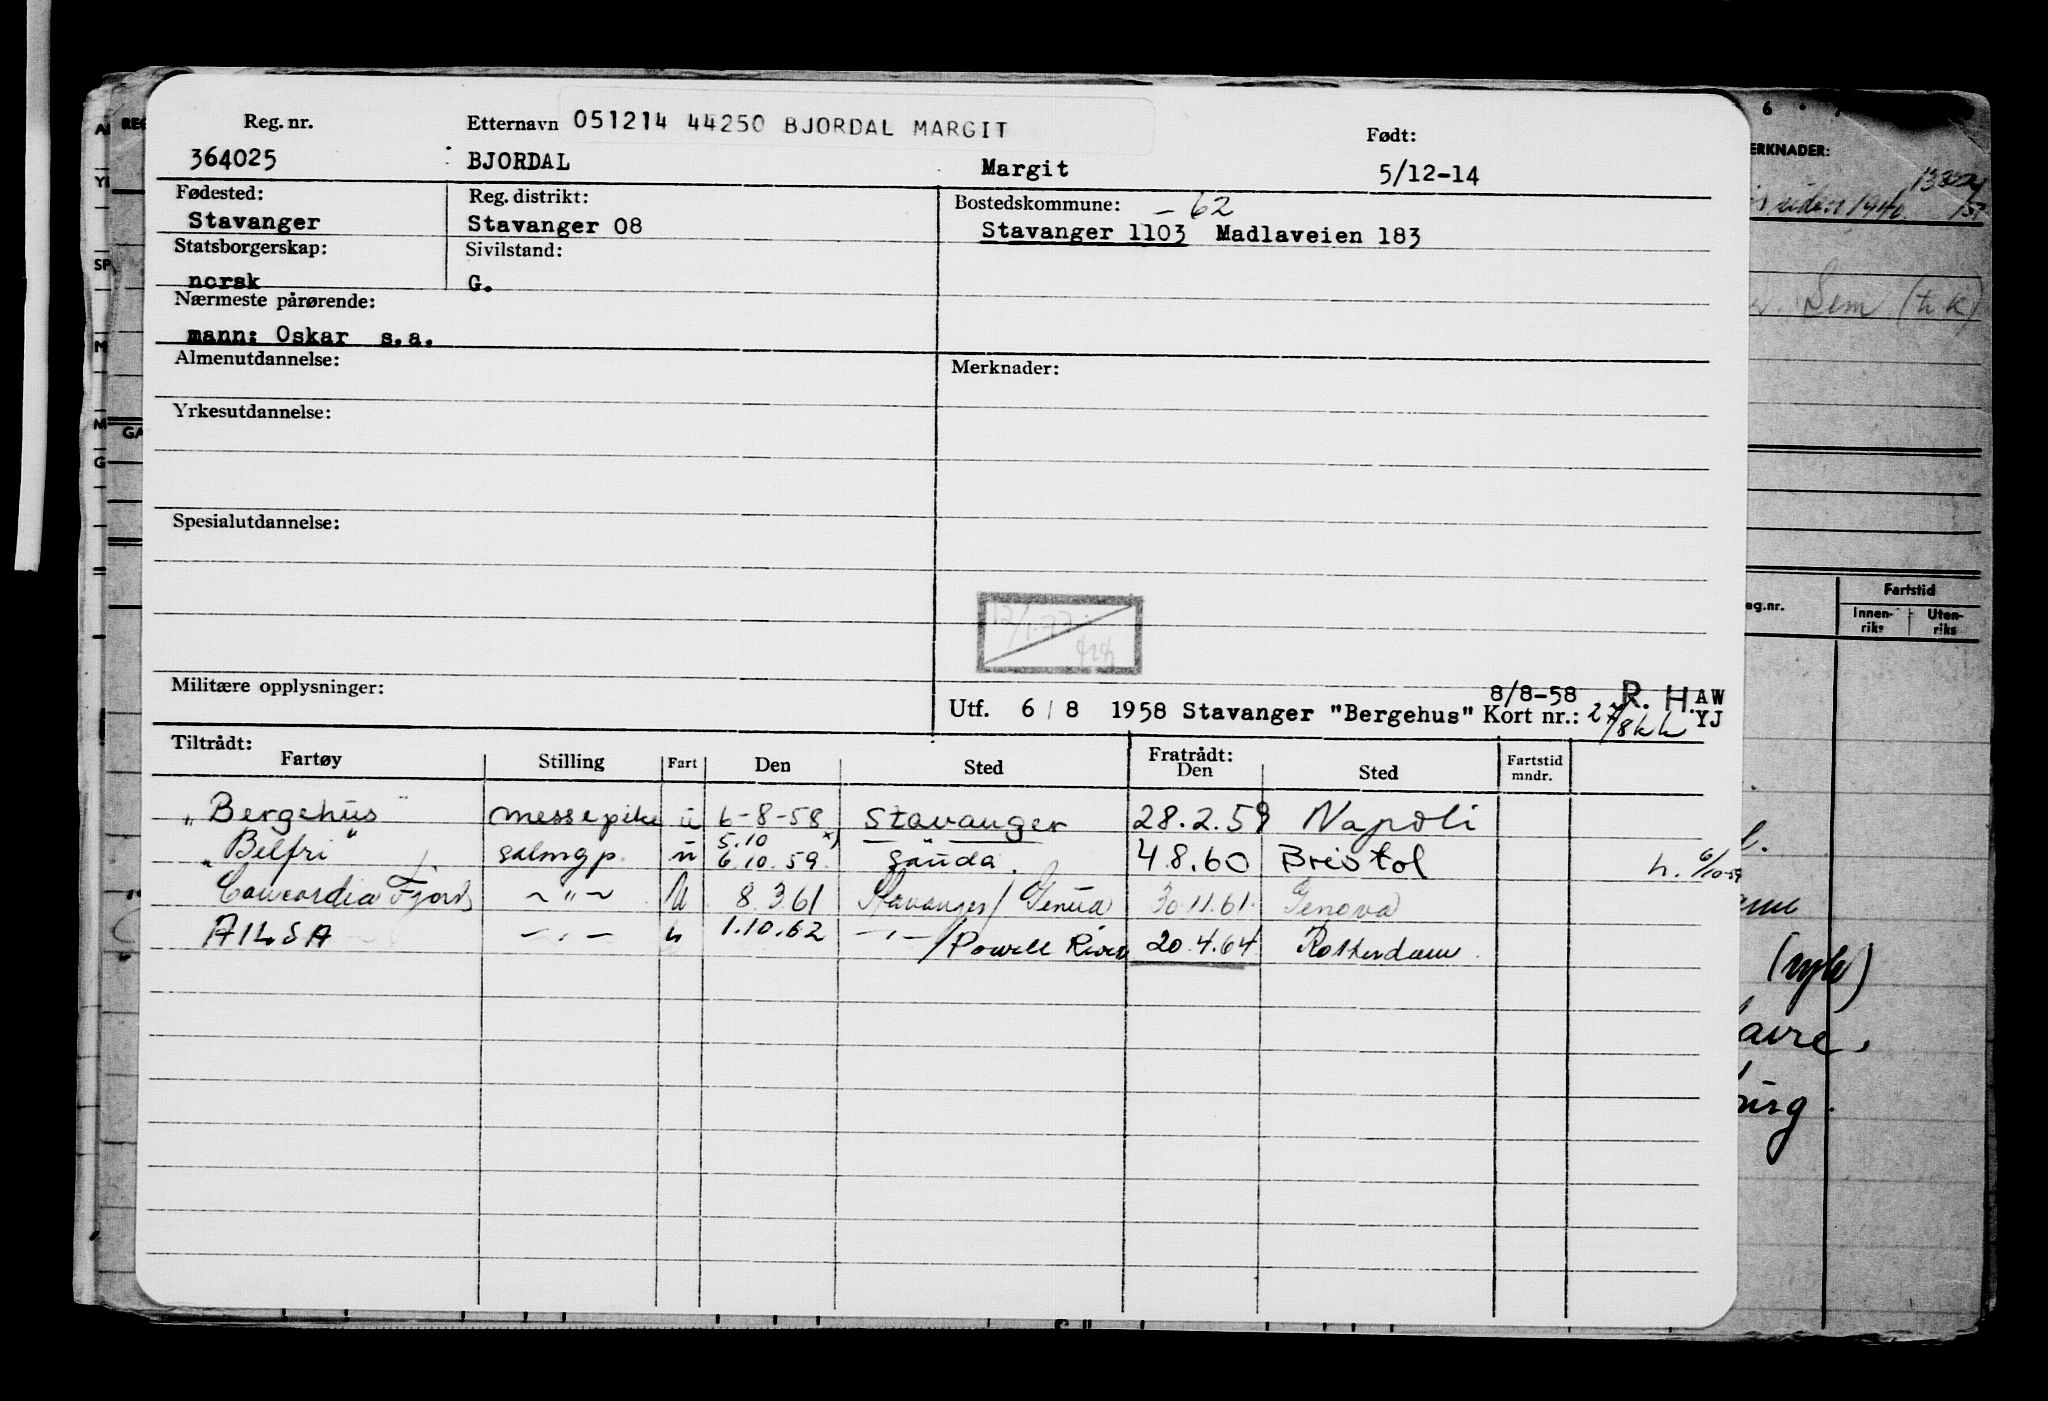 Reg. nr. Etternavn 051214 44250 BJORDAL MARGIT Født:
364025 BJORDAL Margit 5/12-14
Fødested: Reg. distrikt: Bostedskommune: -62
Stavanger Stavanger 08 Stavanger 1103 Madlaveien 183
Statsborgerskap: Sivilstand:
norsk G.
Nærmeste pårørende:
mann: Oskar s.a.
Almenutdannelse: Merknader:
Yrkesutdannelse:
Spesialutdannelse:
Militære opplysninger:
8/8-58 R. H. AW
Utf. 6/8 1958 Stavanger "Bergehus" Kort nr.: 27/8 kk YJ
Tiltrådt: Fratrådt:
Fartøy Stilling Fart Den Sted Den Sted Fartstid mndr.
"Bergehus" messepike u 6-8-58 Stavanger 28.2.59 Napoli
5.10 x)
"Belfri" salongp. u 6.10.59 Sauda. 4.8.60 Bristol h. 6/10-59
Concordia Fjord -"- U 8.3.61 Stavanger/Genua 30.11.61. Genova
AILSA -"- u 1.10.62 -"-/Powell River 20.4.64 Rotterdam.
6
ERKNADER:
siden 1946
Sem (t.k)
eg.nr. Fartstid
Innen-riks Uten-riks
(nyb)
avre.
burg.
REG
AI
YI
SP
M
M
GA
G